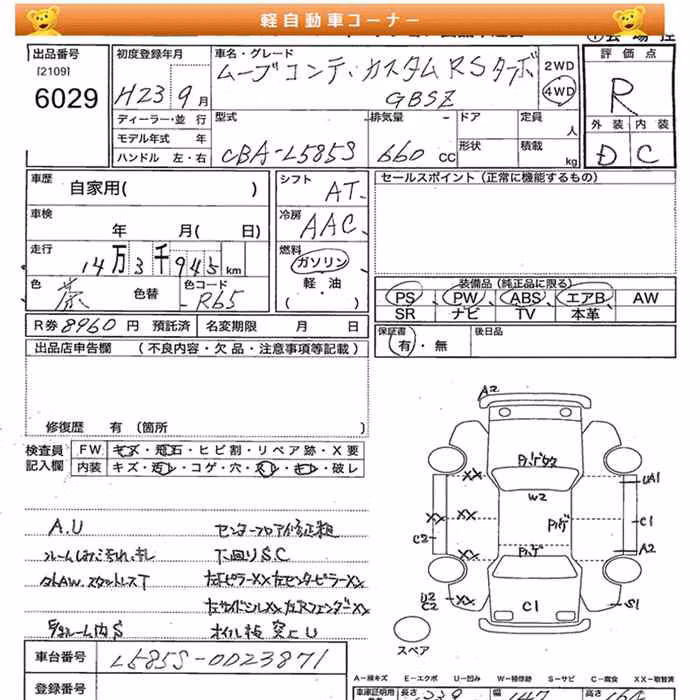 軽自動車コーナー
出品番号
[2109]
6029
初度登録年月
H23 9月
ディーラー・並行
モデル年式 年
ハンドル 左・右
車名・グレード
ムーブコンテ・カスタム RSターボ
GBSZ
2WD
4WD
型式
CBA-L585S
排気量
660 CC
ドア
形状
定員
人
積載
kg
評価点
R
外装 内装
D C
車歴
自家用( )
車検
年 月( 日)
走行
14万3千945km
色
茶
色替
色コード
R65
R券 8960円 預託済 名変期限 月 日
シフト
AT
冷房
AAC
燃料
ガソリン
軽・油
( ・ )
セールスポイント (正常に機能するもの)
装備品 (純正品に限る)
PS PW ABS エアB AW
SR ナビ TV 本革
保証書
有・無
後日品
出品店申告欄 (不良内容・欠品・注意事項等記載)
修復歴 有 (箇所 )
検査員
記入欄
FW キズ・飛石・ヒビ割・リペア跡・X要
内装 キズ・汚レ・コゲ・穴・スレ・キレ・破レ
A.U
センターフロア修正粗
下回りS.C
左FピラーXX左センターピラーXX
左サイドシルXX左RフェンダーXX
A2
XX
W2
UA1
C1
A2
XX
C2
XX
XX
XX
U2
C2
XX
C1
S1
スペア
車台番号
L585S-0023871
登録番号
A-線キズ E-エクボ U-凹み W-補修跡 S-サビ C-腐食 XX-取替済
長さ
幅
高さ